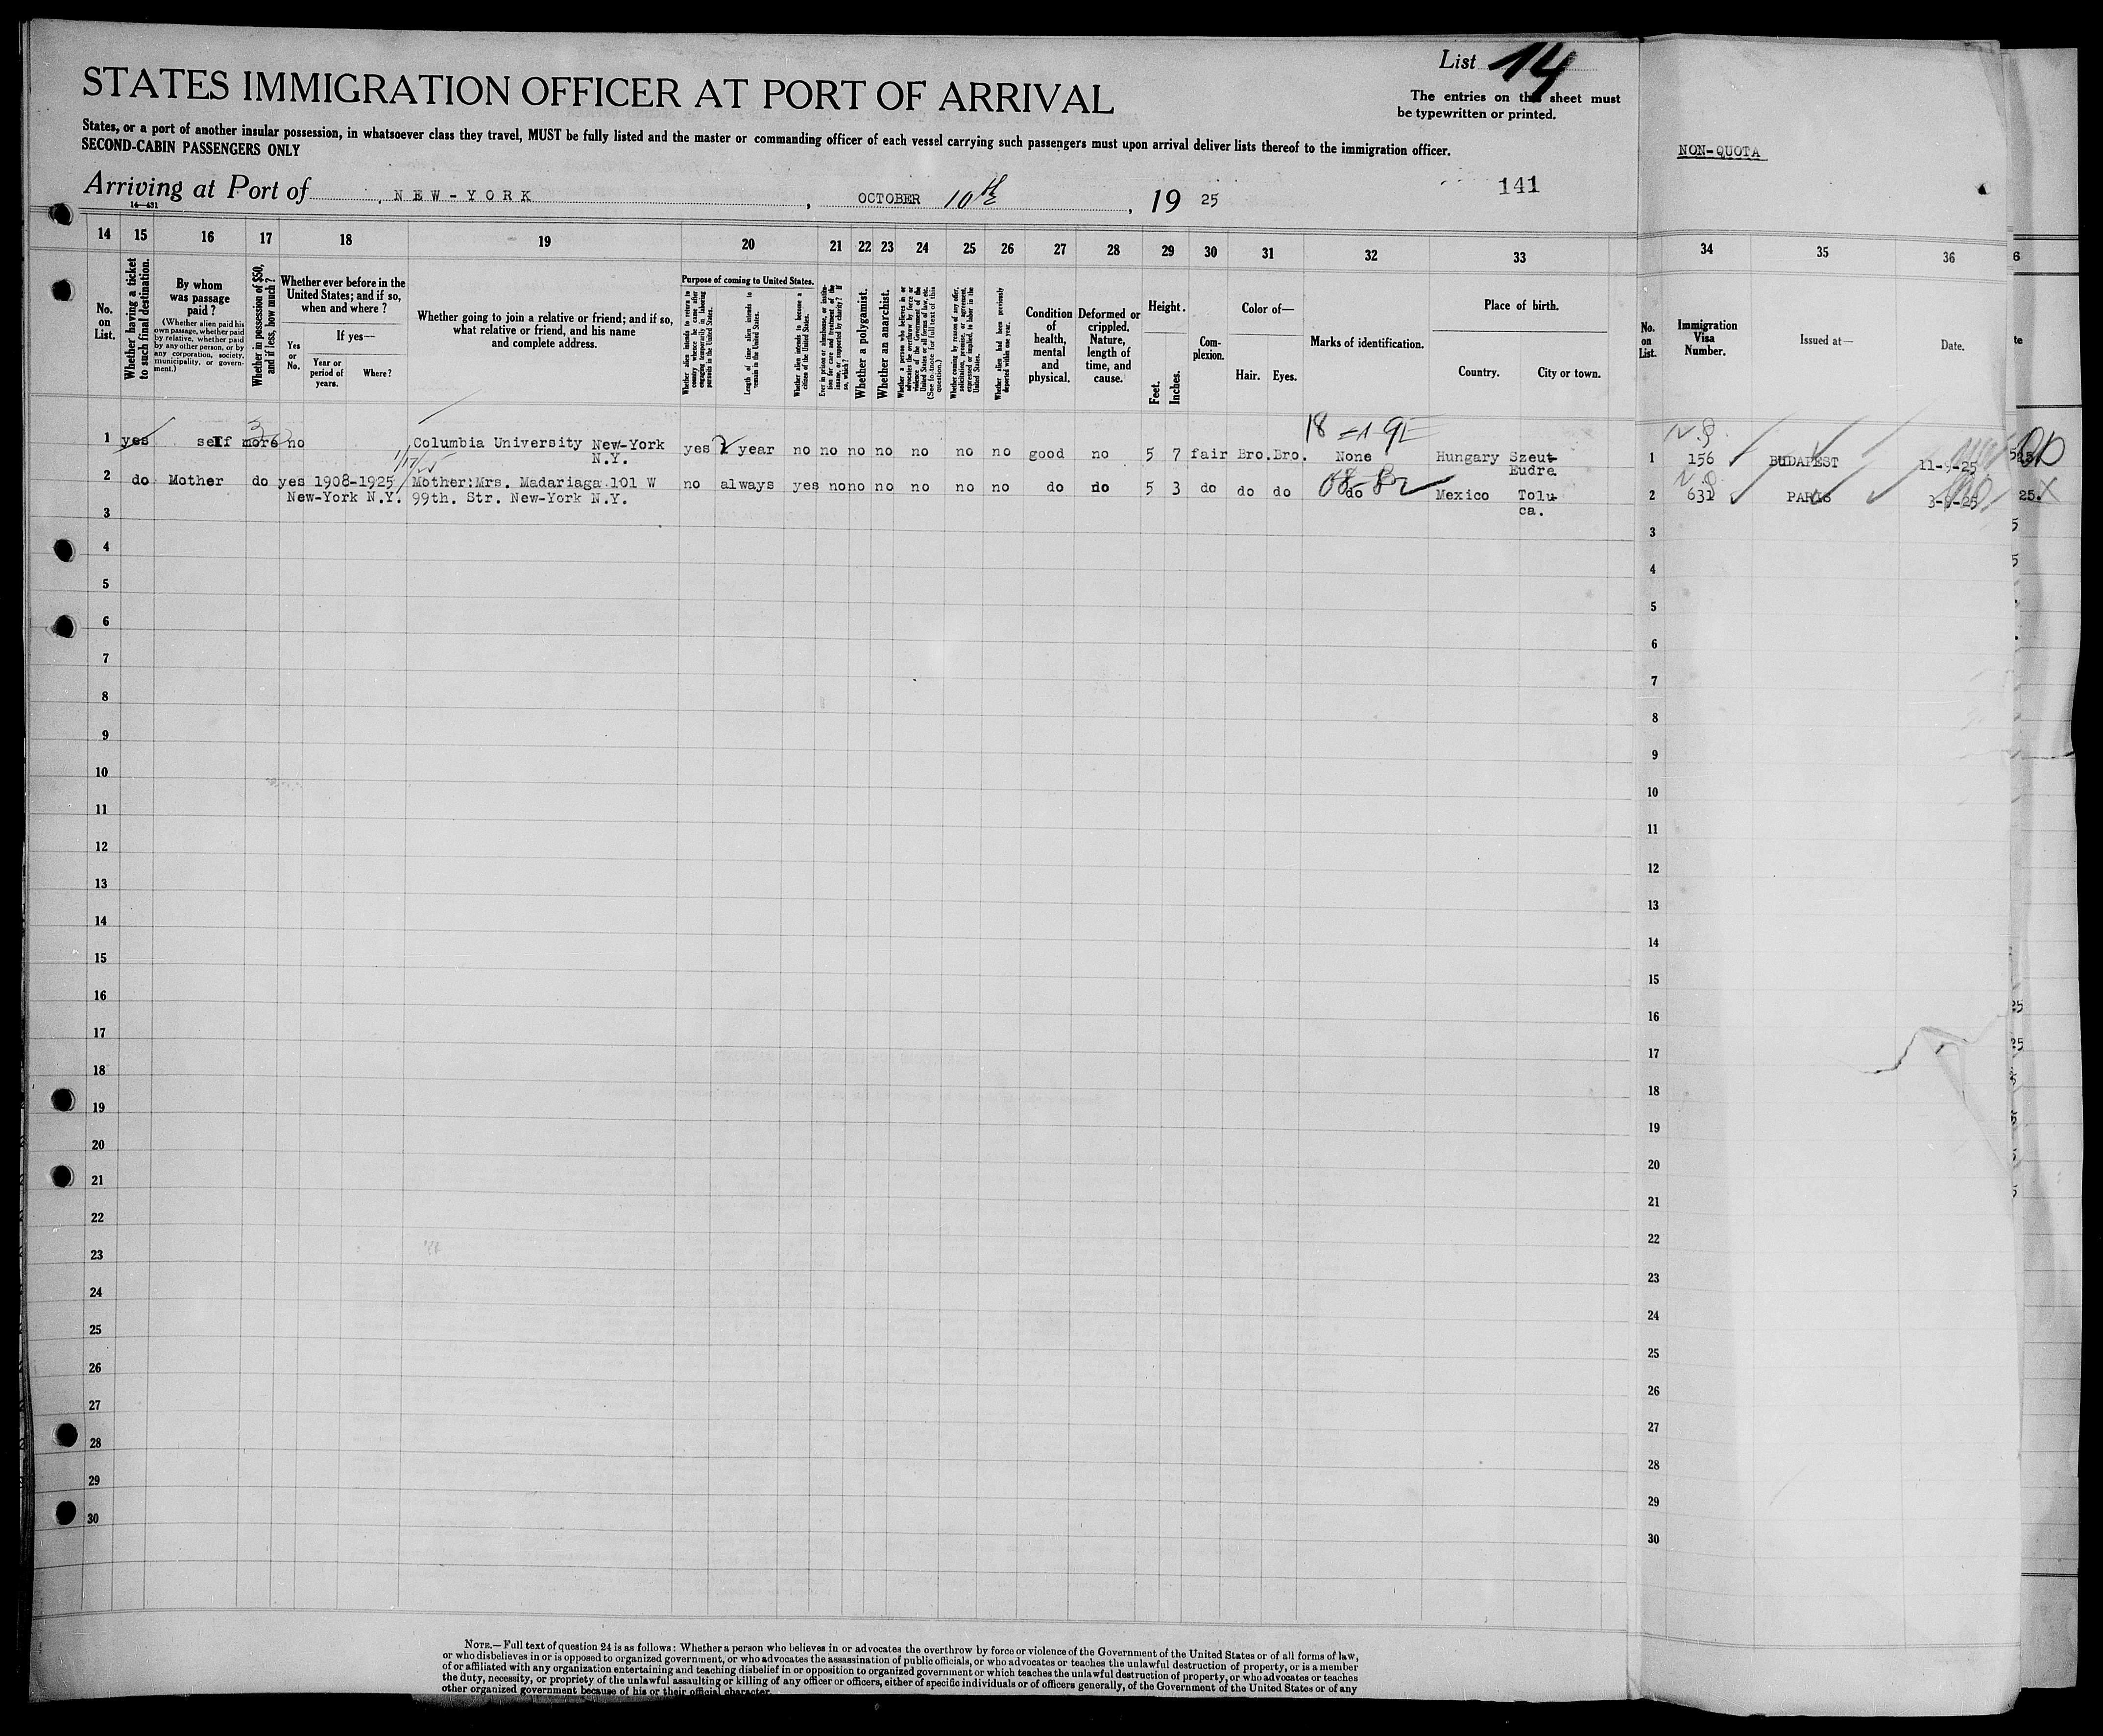 List 14
STATES IMMIGRATION OFFICER AT PORT OF ARRIVAL
The entries on this sheet must
be typewritten or printed.
States, or a port of another insular possession, in whatsoever class they travel, MUST be fully listed and the master or commanding officer of each vessel carrying such passengers must upon arrival deliver lists thereof to the immigration officer.
SECOND-CABIN PASSENGERS ONLY
NON-QUOTA
Arriving at Port of NEW-YORK, OCTOBER 10th, 19 25
141
14—431
14 15 16 17 18 19 20 21 22 23 24 25 26 27 28 29 30 31 32 33 34 35 36
No. on List.
Whether having a ticket to such final destination.
By whom was passage paid?
(Whether alien paid his own passage, whether paid by relative, whether paid by any other person, or by any corporation, society, municipality, or government.)
Whether in possession of $50, and if less, how much?
Whether ever before in the United States; and if so, when and where?
Yes or No.
If yes—
Year or period of years.
Where?
Whether going to join a relative or friend; and if so, what relative or friend, and his name and complete address.
Purpose of coming to United States.
Whether alien intends to return to country whence he came after engaging temporarily in laboring pursuits in the United States.
Length of time alien intends to remain in the United States.
Whether alien intends to become a citizen of the United States.
Ever in prison or almshouse, or institution for care and treatment of the insane, or supported by charity? If so, which?
Whether a polygamist.
Whether an anarchist.
Whether a person who believes in or advocates the overthrow by force or violence of the Government of the United States or all forms of law, etc. (See footnote for full text of this question.)
Whether coming by reason of any offer, solicitation, promise, or agreement, expressed or implied, to labor in the United States.
Whether alien had been previously deported within one year.
Condition of health, mental and physical.
Deformed or crippled. Nature, length of time, and cause.
Height.
Feet.
Inches.
Complexion.
Color of—
Hair.
Eyes.
Marks of identification.
Place of birth.
Country.
City or town.
No. on List.
Immigration Visa Number.
Issued at—
Date.
1 yes self more no Columbia University New-York N.Y. yes 2 year no no no no no no no good no 5 7 fair Bro. Bro. None Hungary Szeut-Eudre 1 156 BUDAPEST 11-9-25
2 do Mother do yes 1908-1925 Mother:Mrs. Madariaga 101 W no always yes no no no no no no do do 5 3 do do do do Mexico Tolu- 2 631 PARIS 3-9-25
New-York N.Y. 99th. Str. New-York N.Y. ca.
3 3
4 4
5 5
6 6
7 7
8 8
9 9
10 10
11 11
12 12
13 13
14 14
15 15
16 16
17 17
18 18
19 19
20 20
21 21
22 22
23 23
24 24
25 25
26 26
27 27
28 28
29 29
30 30
NOTE.—Full text of question 24 is as follows: Whether a person who believes in or advocates the overthrow by force or violence of the Government of the United States or of all forms of law,
or who disbelieves in or is opposed to organized government, or who advocates the assassination of public officials, or who advocates or teaches the unlawful destruction of property, or is a member
of or affiliated with any organization entertaining and teaching disbelief in or opposition to organized government or which teaches the unlawful destruction of property, or who advocates or teaches
the duty, necessity, or propriety of the unlawful assaulting or killing of any officer or officers, either of specific individuals or of officers generally, of the Government of the United States or of any
other organized government because of his or their official character.